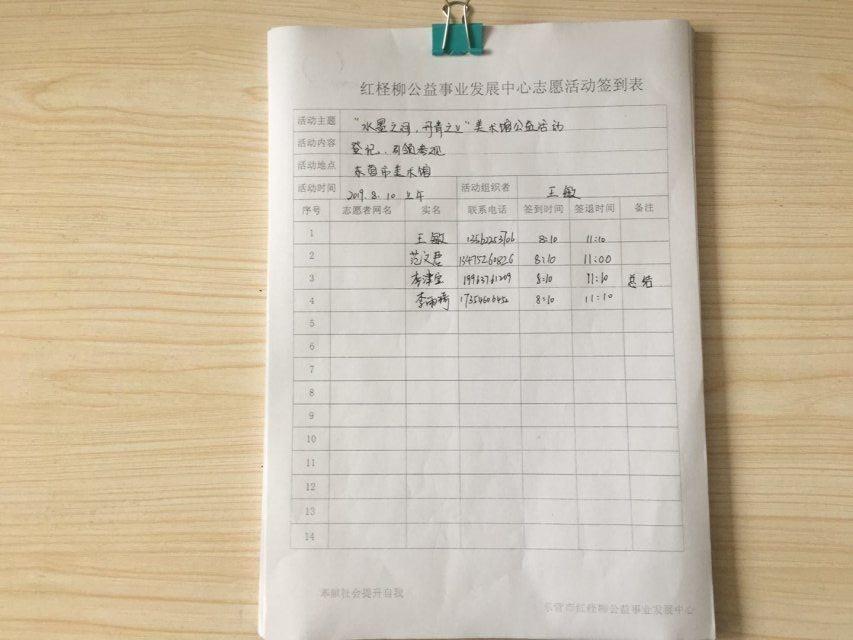 红柽柳公益事业发展中心志愿活动签到表
活动主题 "水墨之间,丹青之上"美术馆公益活动
活动内容 登记、引领参观
活动地点 东营市美术馆
活动时间 2019.8.10 上午 活动组织者 王敏
序号 志愿者网名 实名 联系电话 签到时间 签退时间 备注
1 王敏 8:10 11:10
2 范文君 13475260826 8:10 11:00
3 李津宝 19963761209 8:10 11:10 总结
4 李雨 17354606452 8:10 11:10
5
6
7
8
9
10
11
12
13
14
奉献社会提升自我
东营市红柽柳公益事业发展中心